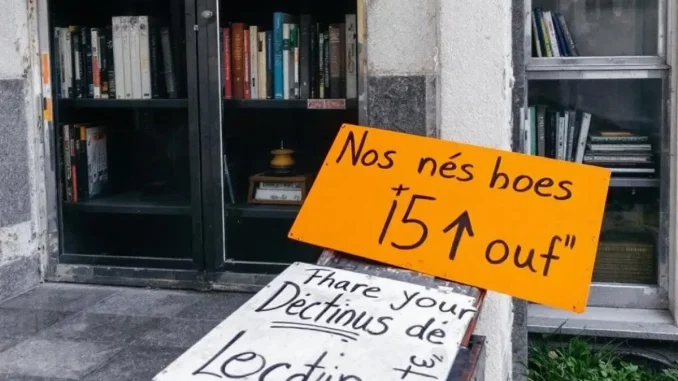 Nos nés hoes
i5↑ ouf"
Fhare your
Dectinus dé
Loctin